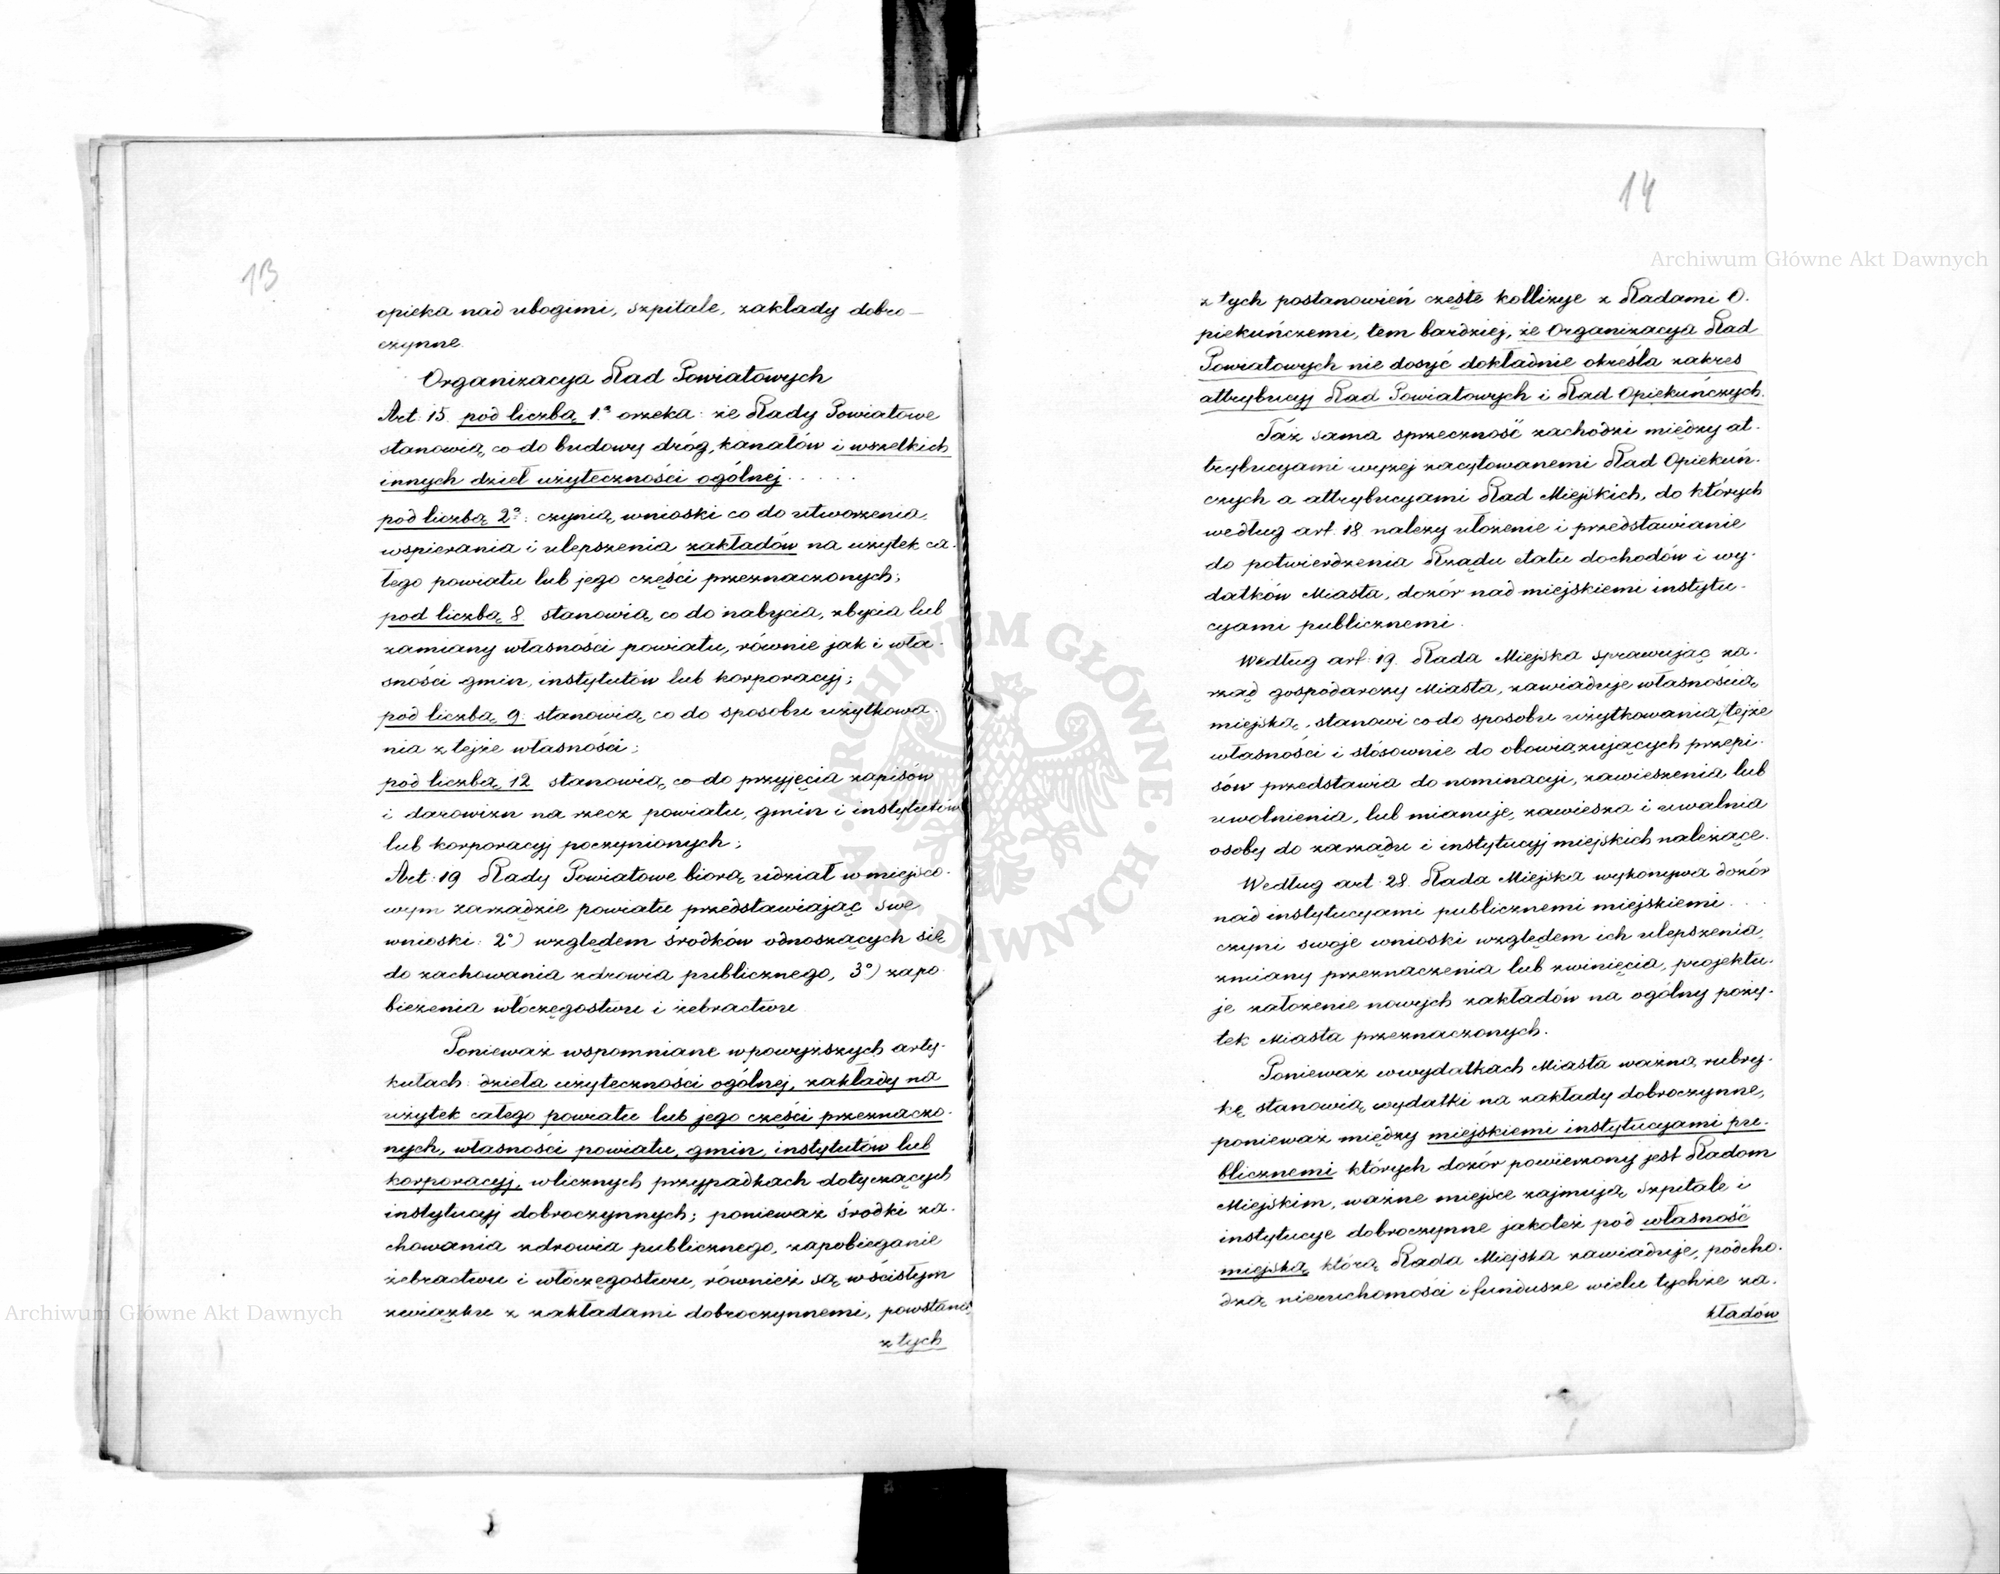 13
opieka nad ubogimi, szpitale, zakłady dobro-
czynne.
Organizacya Rad Powiatowych
Art. 15. pod liczbą 1.ª orzeka: że Rady Powiatowe
stanowią, co do budowy dróg, kanałów i wszelkich
innych dzieł użyteczności ogólnej . . . . .
pod liczbą 2ª: czynią wnioski co do utworzenia,
wspierania i ulepszenia zakładów na użytek ca-
łego powiatu lub jego części przeznaczonych;
pod liczbą 8. stanowią, co do nabycia, zbycia lub
zamiany własności powiatu, równie jak i wła-
sności gmin, instytutów lub korporacyj;
pod liczbą 9. stanowią, co do sposobu użytkowa-
nia z tejże własności;
pod liczbą 12 stanowią, co do przyjęcia zapisów
i darowizn na rzecz powiatu, gmin i instytutów
lub korporacyj poczynionych;
Art. 19 Rady Powiatowe biorą udział w miejsco-
wym zarządzie powiatu przedstawiając swe
wnioski: 2°) względem środków odnoszących się
do zachowania zdrowia publicznego, 3°) zapo-
bieżenia włóczęgostwu i żebractwu.
Ponieważ wspomniane w powyższych arty-
kułach: dzieła użyteczności ogólnej, zakłady na
użytek całego powiatu lub jego części przeznaczo-
nych, własności powiatu, gmin, instytutów lub
korporacyj, w licznych przypadkach dotyczących
instytucyj dobroczynnych; ponieważ środki za-
chowania zdrowia publicznego, zapobieganie
żebractwu i włóczęgostwu, również są w ścisłym
związku z zakładami dobroczynnemi, powstaną
z tych
14
z tych postanowień częste kollizye z Radami O-
piekuńczemi, tem bardziej, że Organizacya Rad
Powiatowych nie dosyć dokładnie określa zakres
attrybucyj Rad Powiatowych i Rad Opiekuńczych.
Taż sama sprzeczność zachodzi między at-
trybucyami wyżej zacytowanemi Rad Opiekuń-
czych a attrybucyami Rad Miejskich, do których
według art. 18 należy ułożenie i przedstawianie
do potwierdzenia Rządu etatu dochodów i wy-
datków Miasta, dozór nad miejskiemi instytu-
cyami publicznemi.
Według art. 19. Rada Miejska sprawując za-
rząd gospodarczy Miasta, zawiaduje własnością
miejską, stanowi co do sposobu użytkowania tejże
własności i stósownie do obowiązujących przepi-
sów przedstawia do nominacyi, zawieszenia lub
uwolnienia, lub mianuje, zawiesza i uwalnia
osoby do zarządu i instytucyj miejskich należące.
Według art. 28. Rada Miejska wykonywa dozór
nad instytucyami publicznemi miejskiemi . . .
czyni swoje wnioski względem ich ulepszenia,
zmiany przeznaczenia lub zwinięcia, projektu-
je założenie nowych zakładów na ogólny poży-
tek Miasta przeznaczonych.
Ponieważ w wydatkach Miasta ważną rubry-
kę stanowią wydatki na zakłady dobroczynne,
ponieważ między miejskiemi instytucyami pu-
blicznemi których dozór powierzony jest Radom
Miejskim, ważne miejsce zajmują Szpitale i
instytucye dobroczynne jakoteż pod własność
miejską którą Rada Miejska zawiaduje, podcho-
dzą nieruchomości i fundusze wielu tychże za-
kładów
Archiwum Główne Akt Dawnych
Archiwum Główne Akt Dawnych
ARCHIWUM GŁÓWNE AKT DAWNYCH